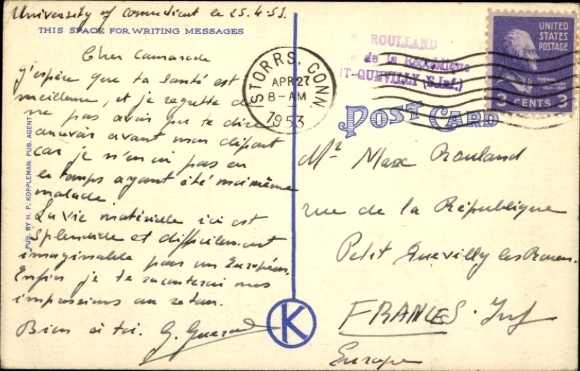 University of Connecticut le 25.4.53.
THIS SPACE FOR WRITING MESSAGES
Cher Camarade
j'espère que ta santé est
meilleure, et je regrette de
ne pas avoir pu te dire
aurevoir avant mon départ
car je n'en ai pas eu
le temps ayant été moi même
malade.
La vie matérielle ici est
splendide et difficilement
imaginable pour un Européen.
Enfin je te raconterai mes
impressions au retour.
Bien à toi. G.
PUB. BY H. P. KOPPLEMAN. PUB. AGENT
K
STORRS, CONN
APR 27
8-AM
1953
ROULLAND
de la République
T-QUEVILLY (S.Inf.)
UNITED
STATES
POSTAGE
3 CENTS 3
POST CARD
Mr Max Rouland
rue de la République
Petit Quevilly les Rouen.
FRANCE S. Inf
Europe